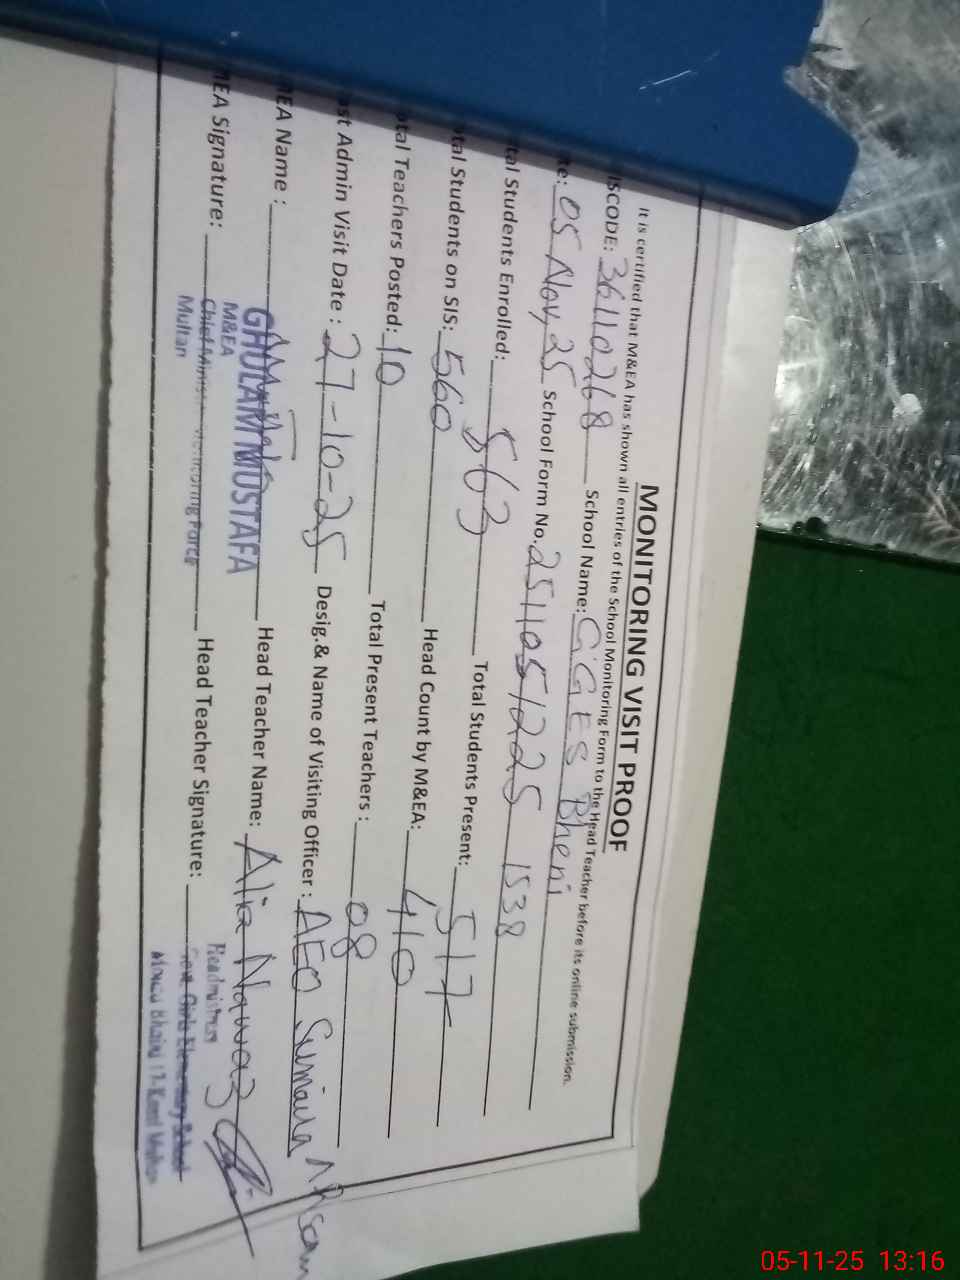 MONITORING VISIT PROOF
It is certified that M&EA has shown all entries of the School Monitoring Form to the Head Teacher before its online submission.
ISCODE: 36110268 School Name: GGES Bheni
te: 05 Nov 25 School Form No. 251105/225 1538
tal Students Enrolled: 563 Total Students Present: 517
tal Students on SIS: 560 Head Count by M&EA: 410
tal Teachers Posted: 10 Total Present Teachers : 08
st Admin Visit Date : 27-10-25 Desig.& Name of Visiting Officer : AEO Sumaira
EA Name : GHULAM MUSTAFA Head Teacher Name: Alia Nawaz
M&EA
EA Signature: Chief Minister Monitoring Force Head Teacher Signature: Headmistress
Multan
Govt. Girls Elementary School
05-11-25 13:16